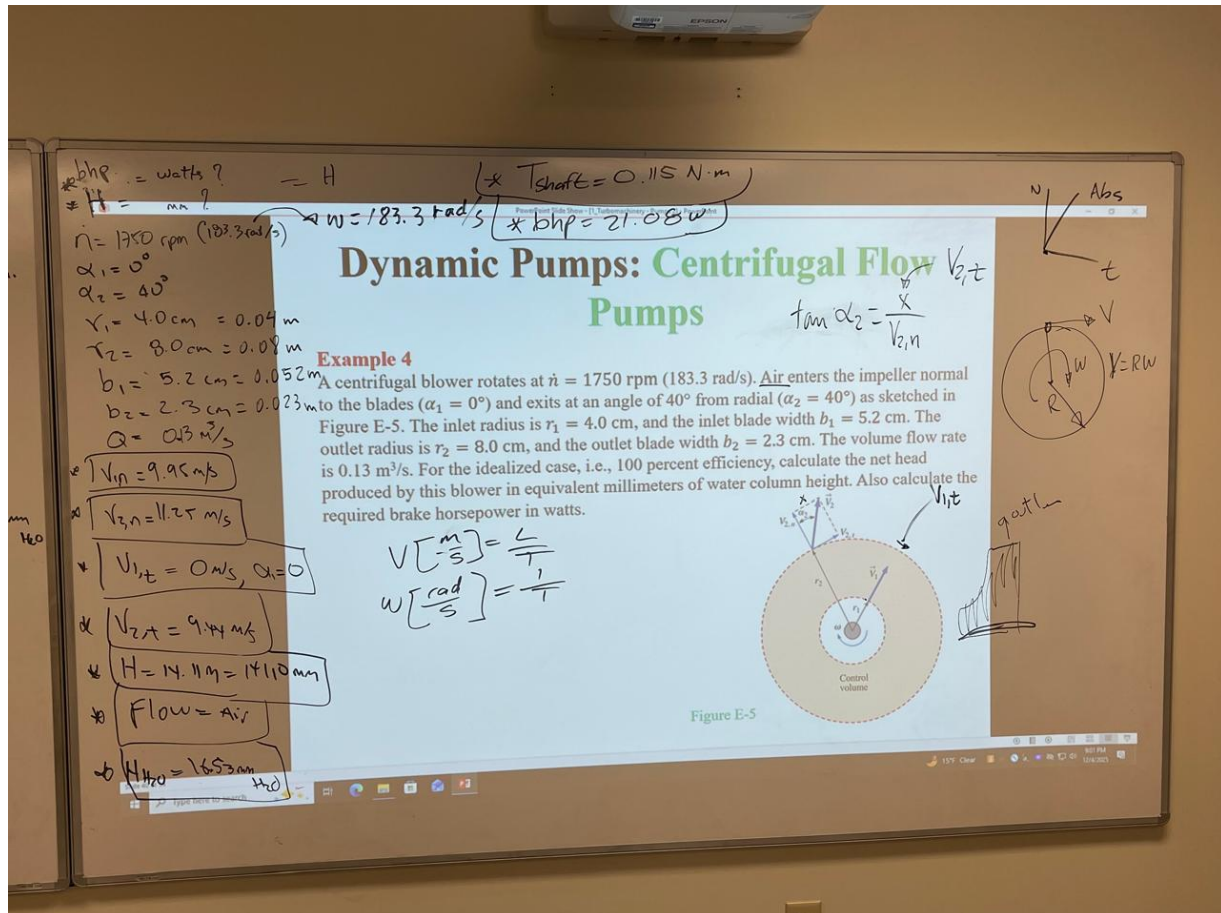 EPSON
*bhp = watts?
= H
* Tshaft = 0.115 N·m
* H = mm?
ṅ = 1750 rpm (183.3 rad/s)
→ w = 183.3 rad/s
* bhp = 21.08 w
α₁ = 0°
α₂ = 40°
r₁ = 4.0 cm = 0.04 m
r₂ = 8.0 cm = 0.08 m
b₁ = 5.2 cm = 0.052 m
b₂ = 2.3 cm = 0.023 m
Q = 0.13 m³/s
* V1n = 9.95 m/s
* V2,n = 11.25 m/s
* V1,t = 0 m/s, α₁ = 0
* V2,t = 9.44 m/s
* H = 14.11 m = 14110 mm
* Flow = Air
* HH₂O = 16.53 mm H₂O
mm
H₂O
Dynamic Pumps: Centrifugal Flow
Pumps
V2,t
tan α₂ = X / V2,n
Example 4
A centrifugal blower rotates at ṅ = 1750 rpm (183.3 rad/s). Air enters the impeller normal
to the blades (α₁ = 0°) and exits at an angle of 40° from radial (α₂ = 40°) as sketched in
Figure E-5. The inlet radius is r₁ = 4.0 cm, and the inlet blade width b₁ = 5.2 cm. The
outlet radius is r₂ = 8.0 cm, and the outlet blade width b₂ = 2.3 cm. The volume flow rate
is 0.13 m³/s. For the idealized case, i.e., 100 percent efficiency, calculate the net head
produced by this blower in equivalent millimeters of water column height. Also calculate the
required brake horsepower in watts.
V [m/s] = L/T
w [rad/s] = 1/T
V1,t
x
α₂
V⃗₂
r₂
V⃗₁
r₁
ω
Control
volume
Figure E-5
N
Abs
t
V
w
R
V = RW
15°F Clear
9:01 PM
12/6/2023
Type here to search